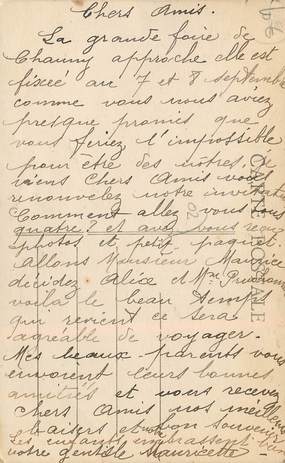 Chers Amis.
La grande foire de
Chauny approche elle est
fixeé au 7 et 8 septembre
comme vous nous aviez
presque promis que
vous feriez l'impossible
pour être des nôtres. Je
viens Chers Amis vous
renouvelez notre invitation
Comment allez vous tous
quatre? et avez vous reçu
photos et petit paquet.
Allons Monsieur Maurice
décidez Alice et Mme
voila le beau temps
qui revient ce sera
agréable de voyager.
Mes beaux parents vous
envoient leurs bonnes
amitiés et vous recevez
chers Amis nos meilleurs
baisers et bon souvenir
Les enfants embrassent bien
votre gentille Mauricette
CARTE POSTALE